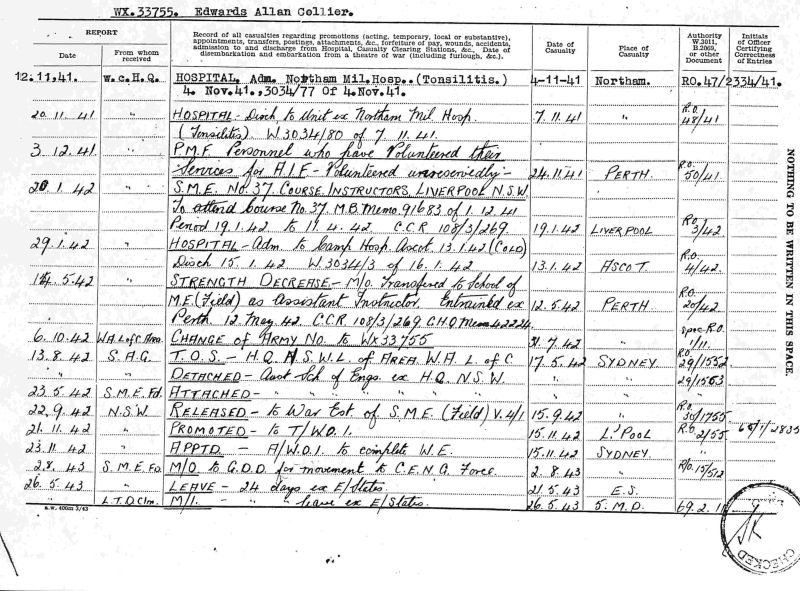 WX.33755. Edwards Allan Collier.
REPORT
Date
From whom received
Record of all casualties regarding promotions (acting, temporary, local or substantive),
appointments, transfers, postings, attachments, &c., forfeiture of pay, wounds, accidents,
admission to and discharge from Hospital, Casualty Clearing Stations, &c. Date of
disembarkation and embarkation from a theatre of war (including furlough, &c.).
Date of Casualty
Place of Casualty
Authority W.3011, B.2069, or other Document
Initials of Officer Certifying Correctness of Entries
12.11.41. W.C.H.Q. HOSPITAL. Adm. Northam Mil.Hosp..(Tonsilitis.) 4-11-41 Northam. RO.47/2334/41.
4. Nov.41.,3034/77 Of 4.Nov.41.
20. 11. 41 " HOSPITAL - Disch. to Unit ex Northam Mil Hosp. 7. 11. 41 R.O. 48/41
(Tonsilites). W 3034/80 of 7. 11. 41.
3. 12. 41 " P.M.F. Personnel who have Volunteered their
Services for A.I.F - Volunteered unreservedly - 24.11.41 PERTH. R.O. 50/41
20. 1. 42 " S.M.E. No. 37. COURSE, INSTRUCTORS, LIVERPOOL N.S.W
To attend Course No. 37. M.B. Memo. 91683 of 1. 12. 41
Period 19. 1. 42 to 11. 4. 42 C.C.R 108/3/269. 19.1.42 LIVERPOOL R.O. 3/42
29. 1. 42 " HOSPITAL - Adm. to Camp Hosp. Ascot. 13.1.42 (COLD)
Disch 15. 1. 42 W 3034/3 of 16. 1. 42 13.1.42 ASCOT. R.O. 4/42.
14. 5. 42 " STRENGTH DECREASE - M/O. Transfered to School of
M.E. (Field) as Assistant Instructor. Entrained ex 12.5.42 PERTH. R.O. 20/42
Perth 12 May 42. C.C.R. 108/3/269. G.H.Q Mem 42224.
6. 10. 42 W.A. L of C. Area. CHANGE OF ARMY No. to WX33755 31. 7. 42 " spec. R.O. 1/11
13. 8. 42 S. A. G. T. O. S. - H.Q. A.S.W.L. of AREA. W.A. L. of C 17. 5. 42 SYDNEY. R.O. 29/1552
DETACHED - Aust Sch. of Engs. ex H.Q. N.S.W. " " 29/1553
23. 5. 42 S.M.E. Fd. ATTACHED - " " "
22. 9. 42 N.S.W. RELEASED - to War Est of S.M.E. (Field) V. 4/1 15. 9. 42 " R.O. 30/1755
21. 11. 42 " PROMOTED - to T/W.O. 1. 15. 11. 42 L'POOL R.O. 2/55
23. 11. 42 " APPTD. - A/W.O.1. to complete W.E. 15.11.42 SYDNEY. "
2. 8. 43 S. M. E. Fd. M/O. to G.D.D for movement to C.E.N.G. Force. 2. 8. 43 R/O. 15/512
26. 5. 43 " LEAVE - 24 days ex E/States. 21. 5. 43 E. S.
" L.T.D. Clm. M/I. - " " leave ex E/States. 26. 5. 43 5. M.D. 69. 2. 11
a.w. 400m 3/43
NOTHING TO BE WRITTEN IN THIS SPACE.
CHECKED